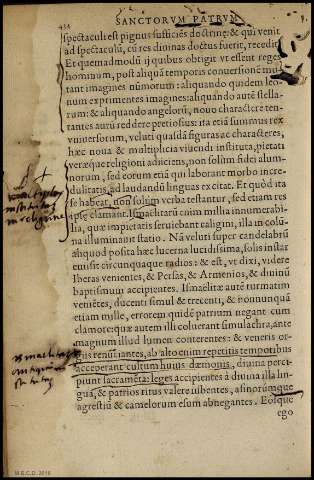 434
SANCTORVM PATRVM
spectaculi est pignus sufficiēs doctrinę: & qui venit
ad spectaculū, cū res diuinas doctus fuerit, recedit.
Et quemadmodū ij quibus obtigit vt essent reges
hominum, post aliquā temporis conuersionē mu-
tant imagines nūmorum: aliquando quidem leo-
num exprimentes imagines: aliquando autē stella-
rum: & aliquando angelorū, nouo charactere ten-
tantes aurū reddere pretiosius: ita etiā summus rex
vniuersorum, veluti quasdā figuras ac characteres,
hæc noua & multiplicia viuendi instituta, pietati
veræque religioni adiiciens, non solùm fidei alum-
norum, sed eorum etiā qui laborant morbo incre-
dulitatis, ad laudandū linguas excitat. Et quòd ita
se habeat, non solùm verba testantur, sed etiam res
ipsę clamant. Ismaelitarū enim millia innumerabi-
lia, quæ impietatis seruiebant caligini, illa in colū-
na illuminauit statio. Nā veluti super candelabrū
aliquod posita hæc lucerna lucidissima, solis instar
emisit circunquaque radios: & est, vt dixi, videre
Iberas venientes, & Persas, & Armenios, & diuinū
baptismum accipientes. Ismaelitæ autē turmatim
veniētes, ducenti simul & trecenti, & nonnunquā
etiam mille, errorem quidē patrium negant cum
clamore: quæ autem illi coluerant simulachra, ante
magnum illud lumen conterentes: & veneris or-
giis renūtiantes, ab alto enim repetitis temporibus
acceperant cultum huius dæmonis, diuina perci-
piunt sacramēta: leges accipientes à diuina illa lin-
gua, & patrios ritus valere iubentes, asinorumque
agrestiū & camelorum esum abnegantes. Eosque
ego
M.E.C.D. 2016